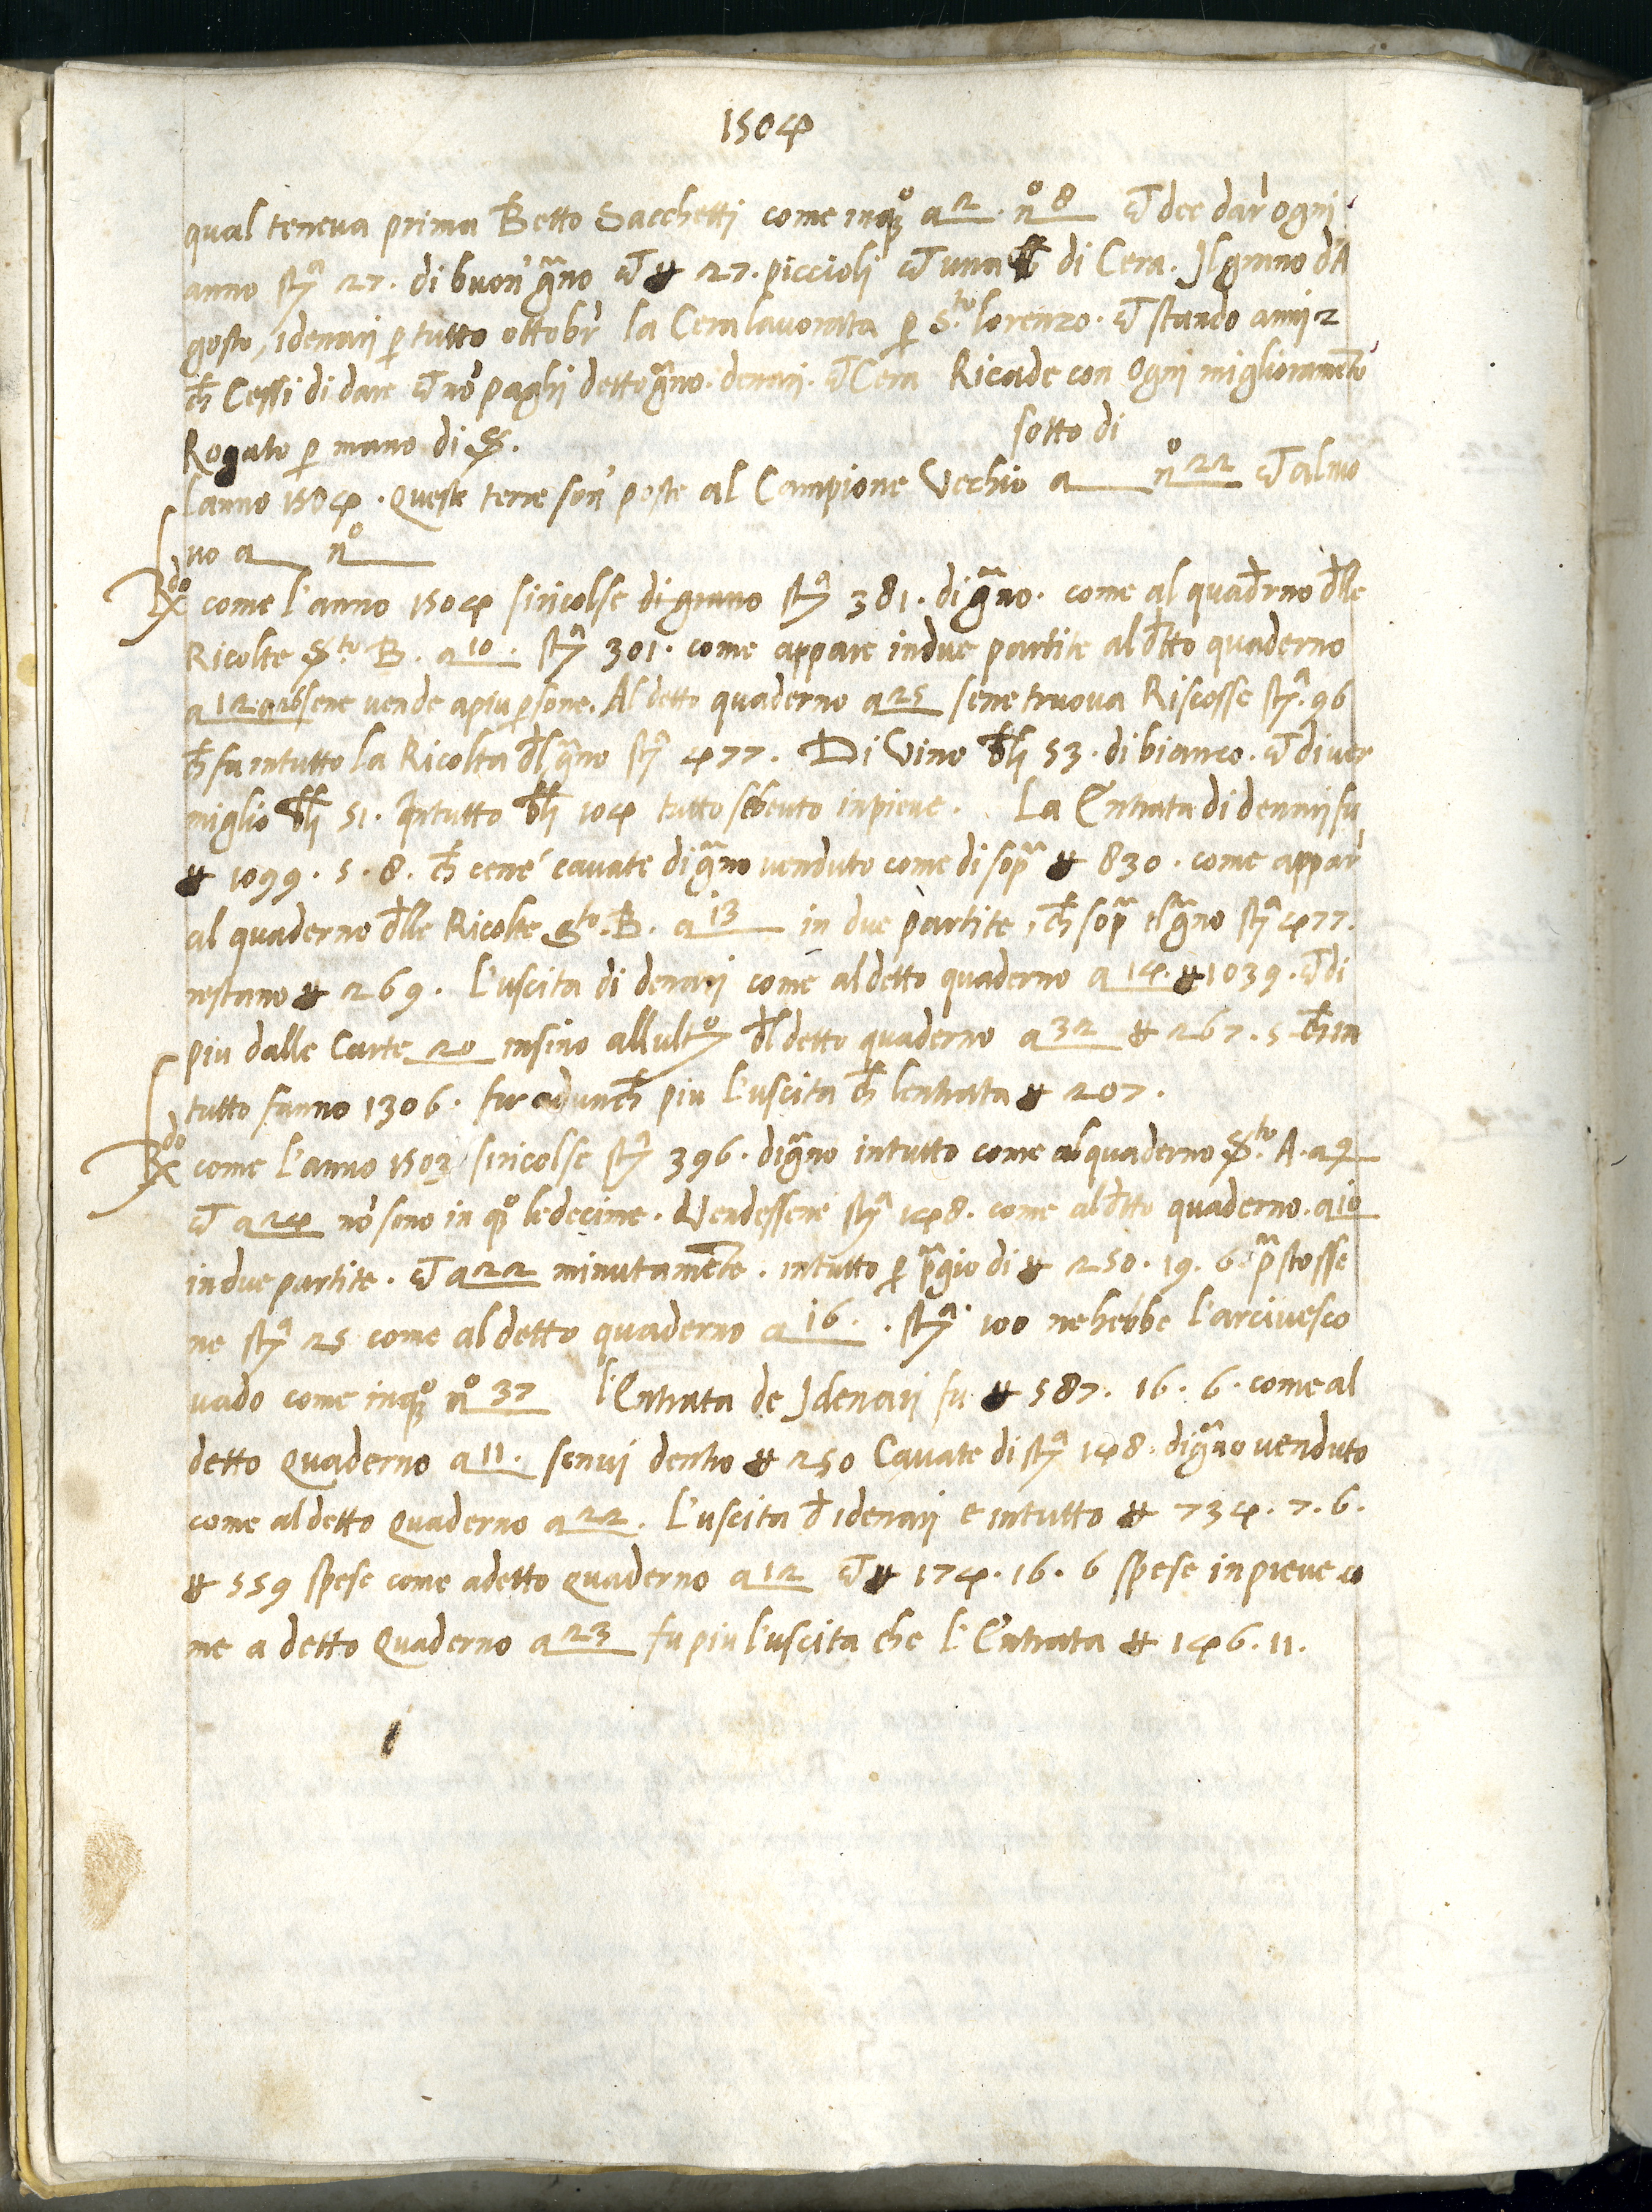 1504
qual teneva prima Betto Sacchetti come inqº a 2 . nº 8 et dee dar ogni
anno stª 27. di buon' grãno et # 27. piccioli et una lb di Cera. Jl grano dA
gosto, idenarj p tutto ottobr' la Cera lavorata p Sto lorenzo. et stando annj 2
ch Cessi di dare et no' paghj detto grãno. denarj. et Cera Ricade con Ognj miglioramẽto
Rogato p mano di S.
sotto di
lanno 1504 . queste terre son' poste al Campione Vechio a nº 22 et al nuo
vo a nº
Rdo come l'anno 1504 siricolse di grano stª 381. di grãno. come al quadrno dlle
Ricolte Sto B. a 10 . stª 301. come appare indue partite al dtto quaderno
a 12. a 26 sene vende apiu psone. Al detto quaderno a 25 sene truova Riscosse stª. 96
ch fa intutto la Ricolta dl grãno stª 477. Di Vino blj 53. di bianco. et di ver
miglio blj 51. Jntutto blj 104 tutto sebeuto inpieve. La Entrata di denarj fu
# 1099. 5. 8. ch cene' cavate di grãno venduto come di soprª # 830. come appar'
al quaderno dlle Ricolte Sto. B. a 13 in due partite, ch soprª el grãno stª 477.
restano # 269. L'uscita di denarj come al detto quaderno a 14. # 1039. et di
piu dalle Carte 20 insino allultº dl detto quaderno a 32 # 267. 5 ch in
tutto fanno 1306. fu adunch piu l'uscita ch lentrata # 207.
Rdo come l'anno 1503 siricolse stª 396. di grãno intutto come al quaderno Sto. A. a 9
et a 24 no' sono in qº ledecime. Vendessene stª 148. come al dtto quaderno. a 10
indue partite. et a 22 minutamẽte. intutto p prãgio di # 250. 19. 6 prãstosse
ne stª 25 come al detto quaderno a 16. . stª. 100 nehebbe l'arcivesco
vado come inqº nº 37 l'Entrata de Jdenarj fu # 587. 16. 6. come al
detto quaderno a 11. sonvi dentro # 250 Cavate di stª 148. di grãno venduto
come al detto quaderno a 22. L'uscita d idenarj e intutto # 734. 7. 6.
# 559 spese come adetto quaderno a 12 et # 174. 16. 6 spese inpieve co
me a detto quaderno a 23 fu piu l'uscita che l'Entrata # 146. 11.